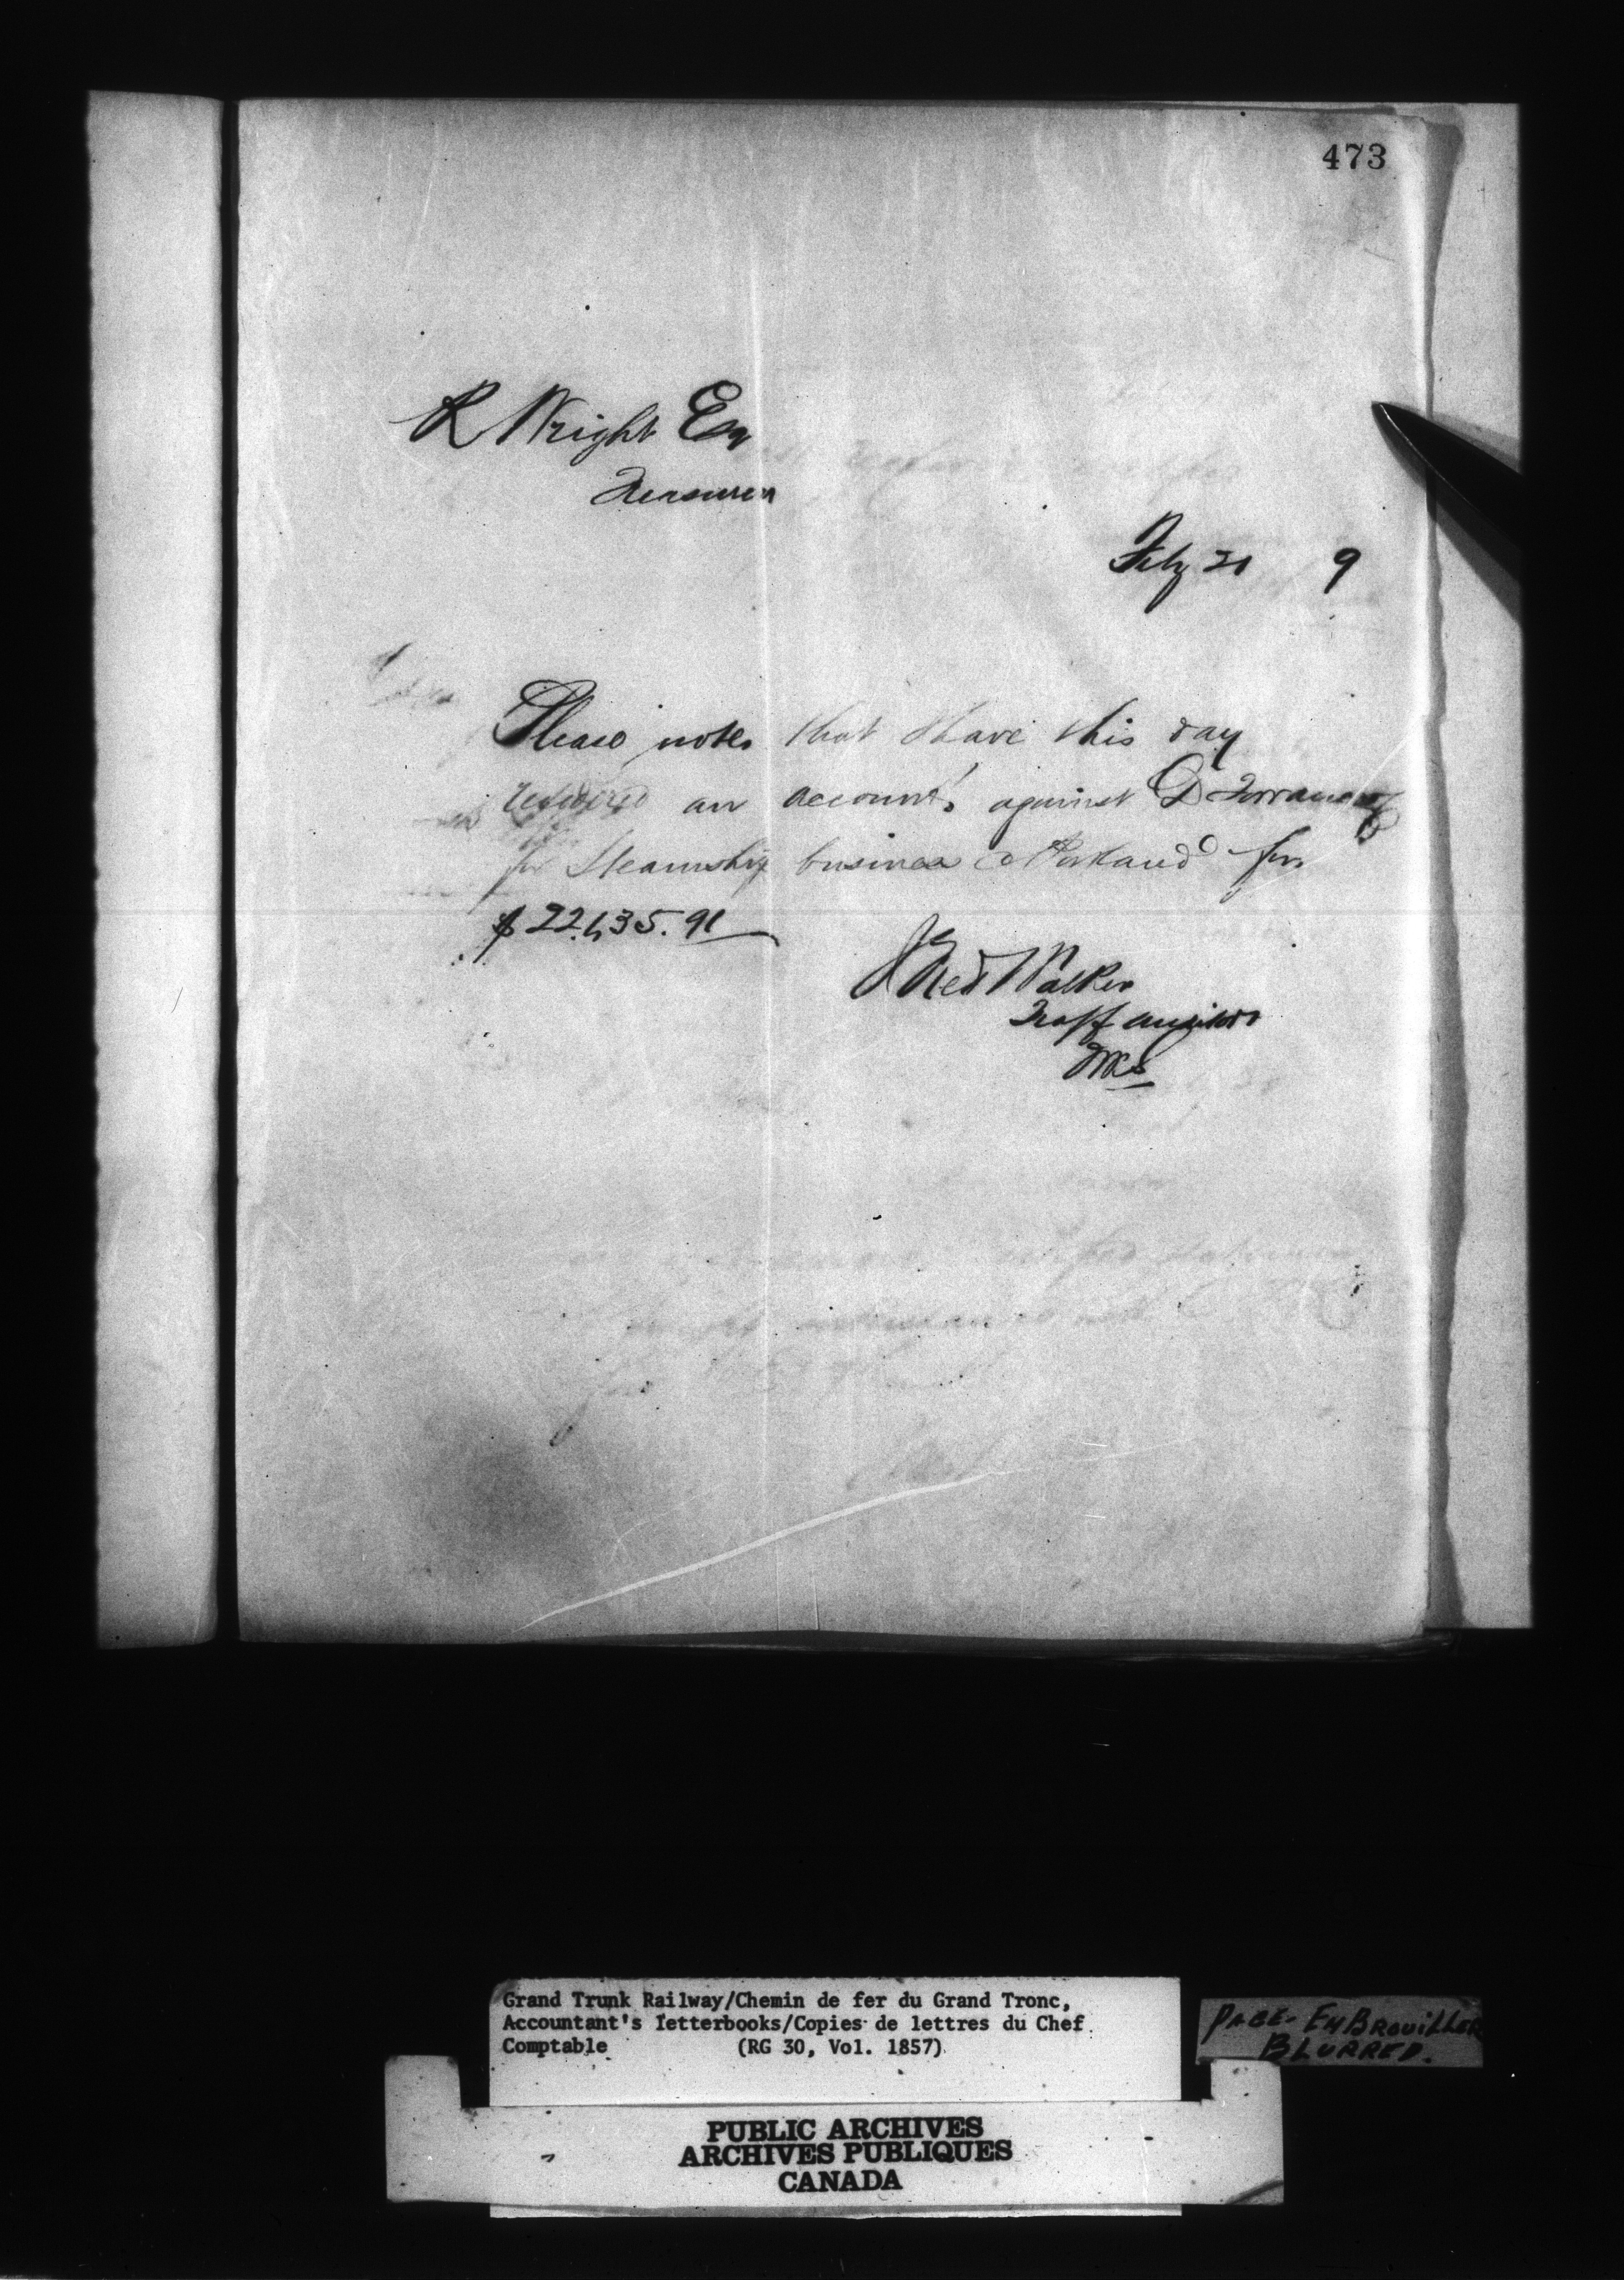 473
R Wright Esq
Treasurer
Feby 21 9
Dear Sir
Please note that I have this day
rendered an account against D Torrance & Co
for Steamship business @ Portland for
$22,635.91
Fred Walker
Traff auditor
Grand Trunk Railway/Chemin de fer du Grand Tronc,
Accountant's letterbooks/Copies de lettres du Chef
Comptable (RG 30, Vol. 1857)
PAGE EMBROUILLER
BLURRED.
PUBLIC ARCHIVES
ARCHIVES PUBLIQUES
CANADA